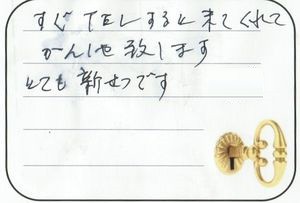 すぐTELすると来てくれて
かんしゃ致します
とても新せつです